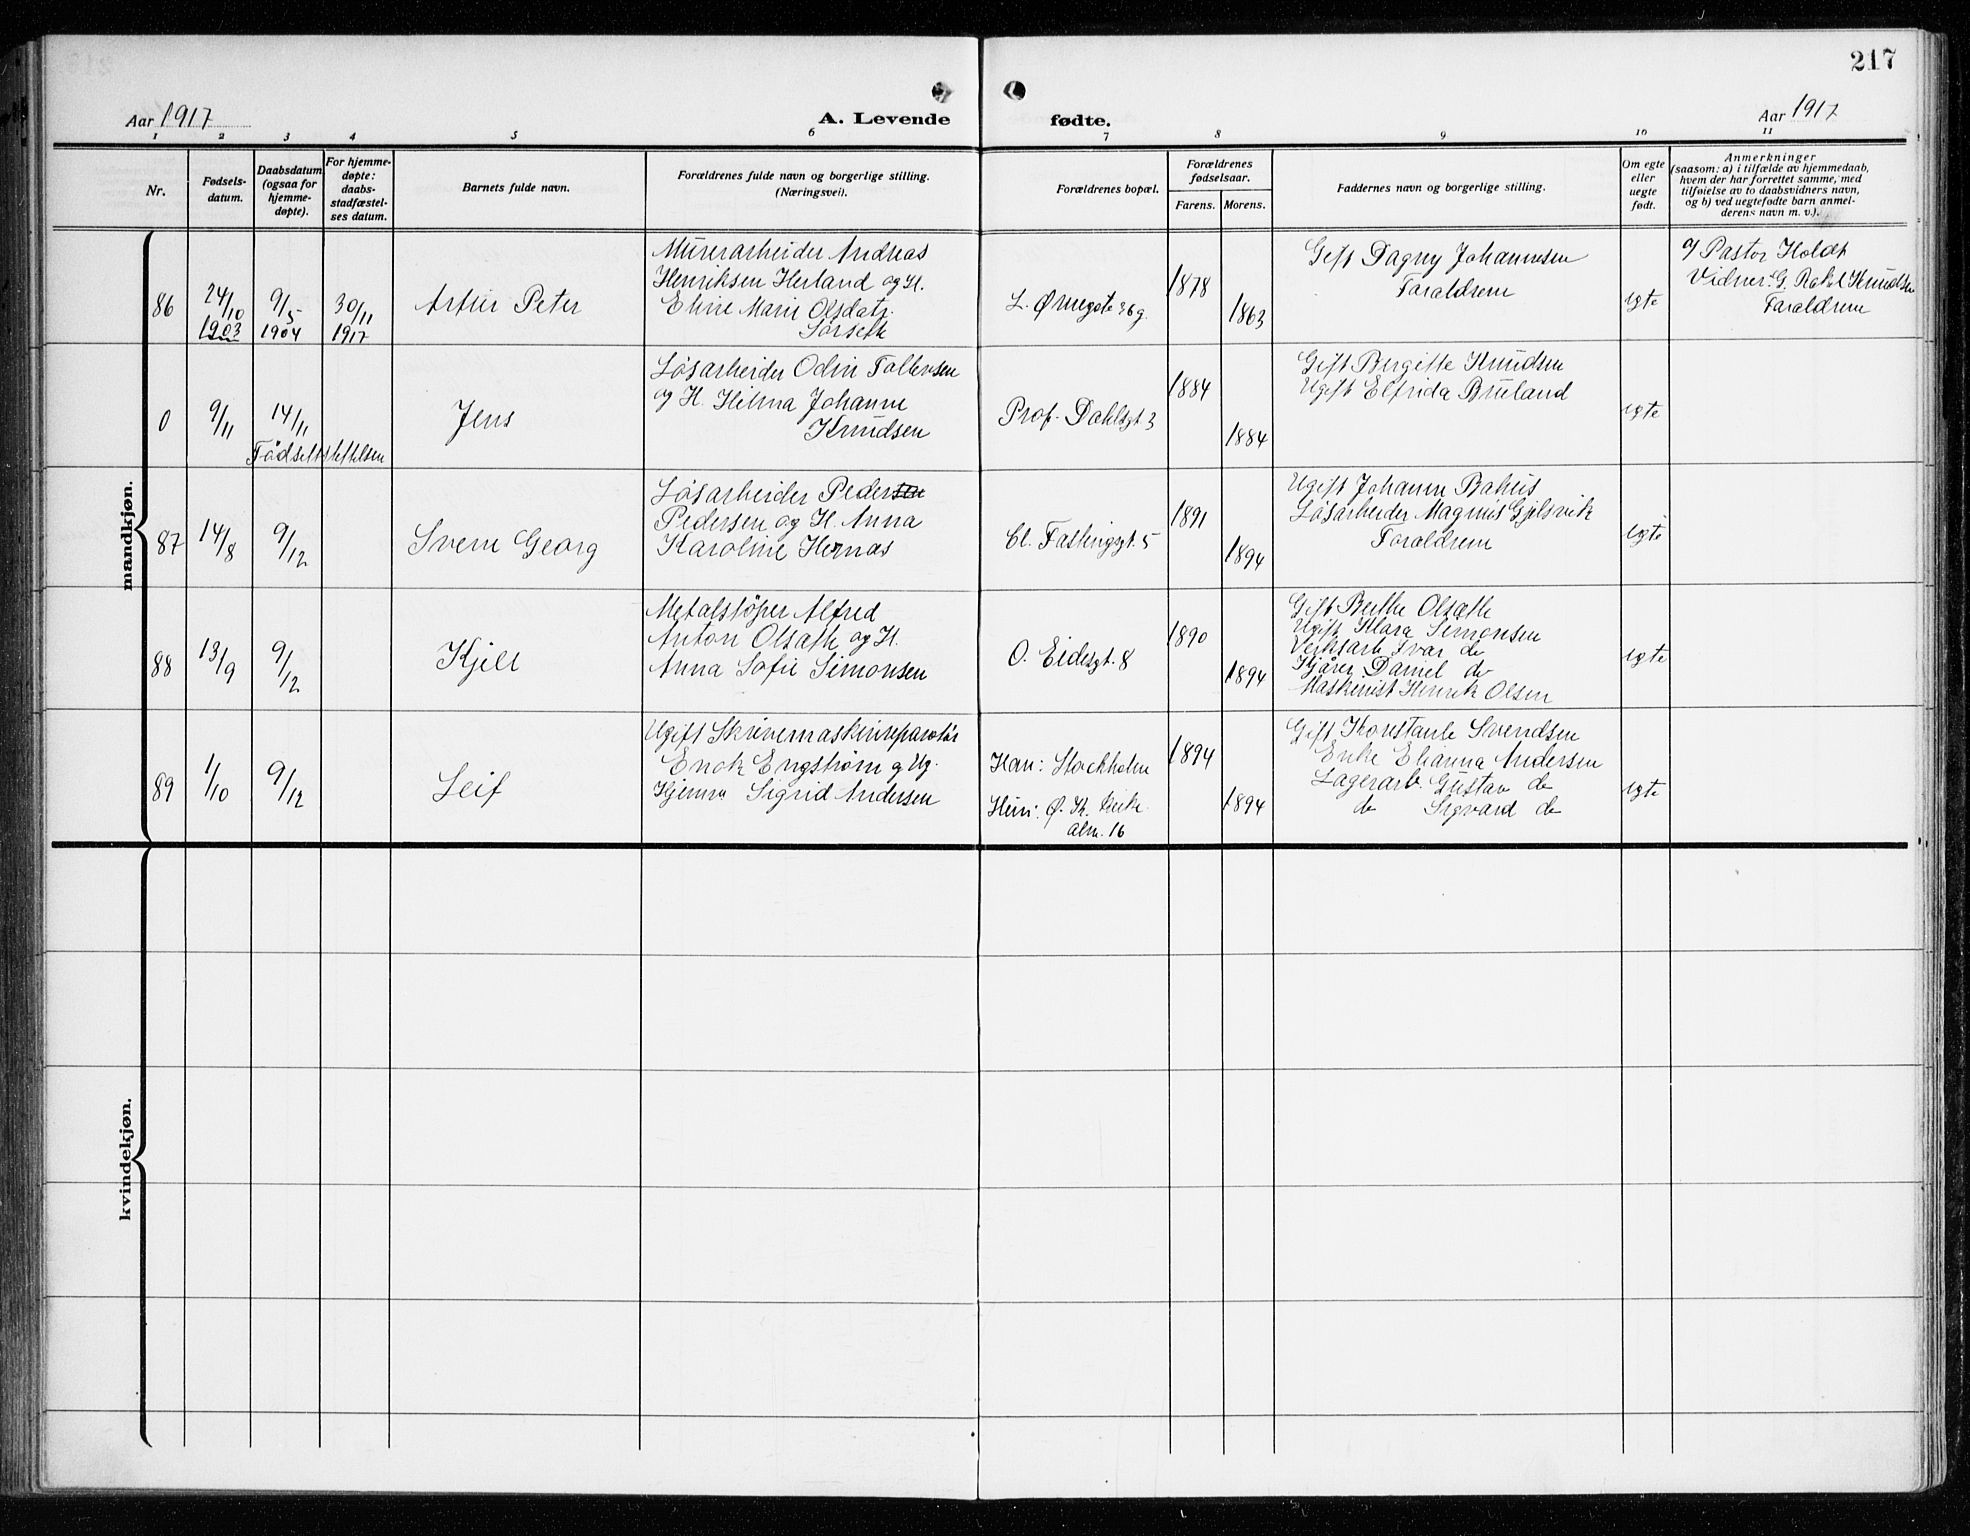 217
Aar 1917
A. Levende fødte.
Aar 1917
1 2 3 4 5 6 7 8 9 10 11
Nr.
Fødsels-
datum.
Daabsdatum
(ogsaa for
hjemme-
døpte).
For hjemme-
døpte:
daabs-
stadfæstel-
ses datum.
Barnets fulde navn.
Forældrenes fulde navn og borgerlige stilling.
(Næringsvei).
Forældrenes bopæl.
Forældrenes
fødselsaar.
Farens. Morens.
Faddernes navn og borgerlige stilling.
Om egte
eller
uegte
født.
Anmerkninger
(saasom: a) i tilfælde av hjemmedaab,
hvem der har forrettet samme, med
tilføielse av to daabsvidners navn,
og b) ved uegtefødte barn anmel-
derens navn m. v.).
mandkjøn.
86
24/10
1903
9/5
1904
30/11
1917
Artur Peter
Murerarbeider Andreas
Henriksen Herland og H.
Eline Marie Olsdatr.
Sørseth
L. Øregate 36 g.
1878
1863
Gift Dagny Johannesen
Foraldrene
egte
af Pastor Holdt
Vidner: G. Rakel Knudsen
Foraldrene
0
9/11
14/11
Fødselsstiftelsen
Jens
Løsarbeider Odin Tollevsen
og H. Helma Johanne
Knudsen
Prof. Dahlsgt 3
1884
1884
Gift Birgitte Knudsen
Ugift Elfrida Bruland
egte
87
14/8
9/12
Svein Georg
Løsarbeider Pedersen
Pedersen og H. Anna
Karoline Hernæs
Cl. Fastingsgt. 5
1891
1894
Ugift Johanne Bahus
Løsarbeider Magnus Gjelsvik
Foraldrene
egte
88
13/9
9/12
Kjell
Metalstøper Alfred
Anton Olsæth og H.
Anna Sofie Simonsen
O. Eidesgt. 8
1890
1894
Gift Berthe Olsæth
Ugift Klara Simonsen
Verksarb Ivar do
Kjører Daniel do
Maskinist Henrik Olsen
egte
89
1/10
9/12
Leif
Ugift Skrivemaskinreparatør
Erick Engstrøm og Ug.
Hjemv Sigrid Andersen
Han: Stockholm
Hun: Ø. K. kirke
alm. 16
1894
1894
Gift Konstanse Svendsen
Enke Elianna Andersen
Lagerarb. Gustav do
do Sigvard do
egte
kvindekjøn.